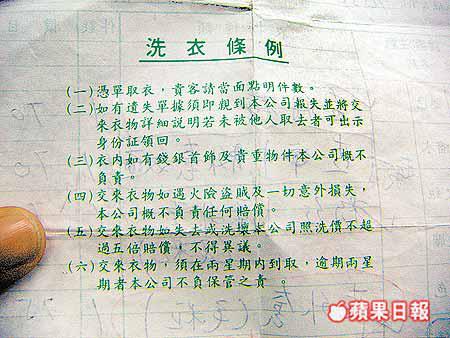 洗衣條例
(一)憑單取衣，貴客請當面點明件數。
(二)如有遺失單據須即親到本公司報失並將交
來衣物詳細説明若未被他人取去者可出示
身份証領回。
(三)衣内如有錢銀首飾及貴重物件本公司概不
負責。
(四)交來衣物如遇火險盜賊及一切意外損失，
本公司概不負責任何賠償。
(五)交來衣物如失去或洗壞本公司照洗價不超
過五倍賠償，不得異議。
(六)交來衣物，須在兩星期内到取，逾期兩星
期者本公司不負保管之責。
蘋果日報